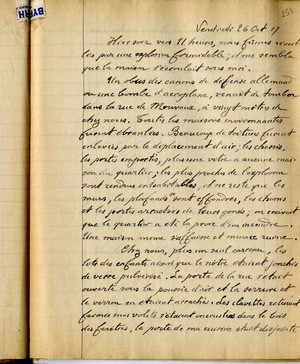 BYRRH
252
Vendredi 26 Oct 17
Hier soir vers 11 heures, nous fûmes réveil
lés par une explosion formidable, il me sembla
que la maison s'écroulait sous moi.
Un obus des canons de défense allemand
ou une bombe d'aéroplane, venait de tomber
dans la rue de Mouvaux, à vingt mètres de
chez nous. Toutes les maisons environnantes
furent ébranlées. Beaucoup de toitures furent
enlevées par le déplacement d'air; les cloisons,
les portes emportées, plus une vitre à aucune mai
son du quartier; les plus proches de l'explosion
sont rendues inhabitables, il ne reste que les
murs, les plafonds sont effondrés, les cloisons
et les portes arrachées de leurs gonds; on croirait
que le quartier a été la proie d'un incendie.
Une maison même s'affaisse et menace ruine.
Chez nous, plus un seul carreau, les
lits des enfants ainsi que le nôtre étaient jonchés
de verre pulvérisé. La porte de la rue s'était
ouverte sous la poussée d'air et la serrure et
le verrou en étaient arrachés. Des clavettes retenant
fermés nos volets s'étaient incrustées dans le bois
des fenêtres, la porte de ma cuisine était disjointe